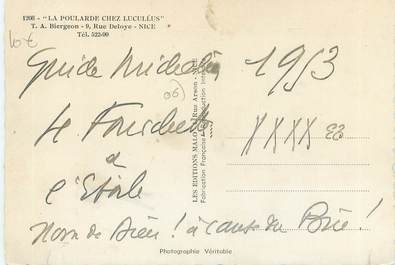 1208 - "LA POULARDE CHEZ LUCULLUS"
T. A. Biergeon - 9, Rue Deloye - NICE
Tél. 522-90
10 €
Guide Michelin 1953
(06)
4 Fourchettes XXXX
à
l'Etoile
Nom de Dieu ! à cause du Brie !
LES EDITIONS MALO Rue Arson -
Fabrication Française
Photographie Véritable